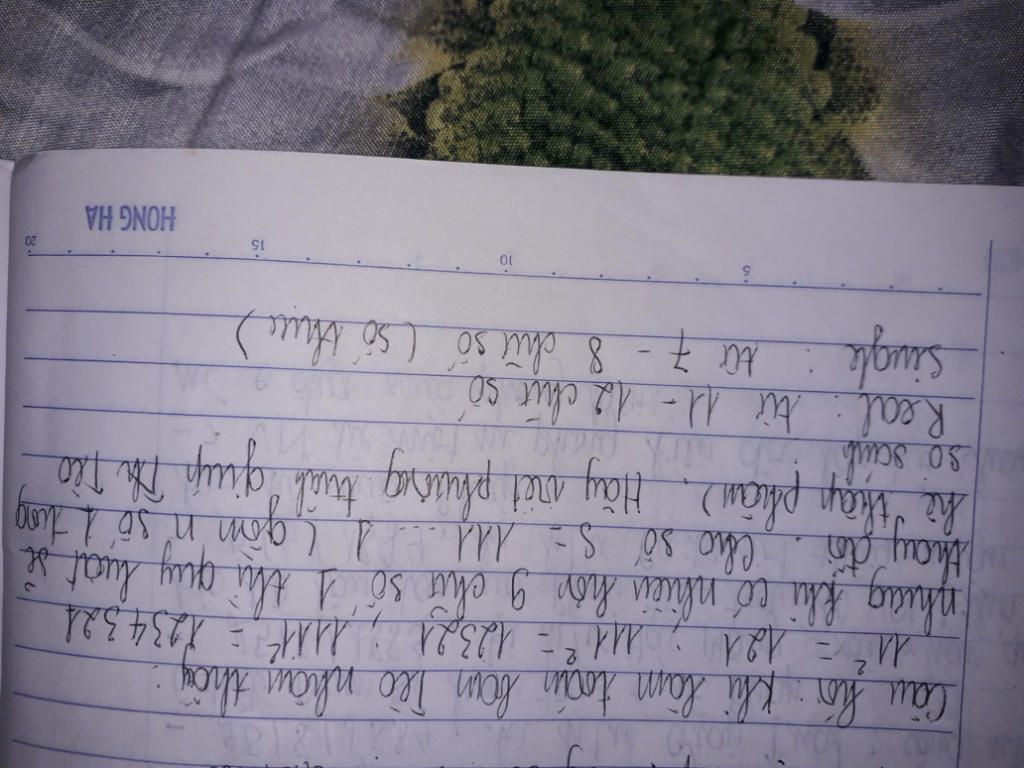 Câu hỏi: Khi làm toán bạn Tèo nhận thấy:
11² = 121 ; 111² = 12321 ; 1111² = 1234321
nhưng khi có nhiều hơn 9 chữ số 1 thì quy luật sẽ
thay đổi. Cho số S = 111 ... 1 (gồm n số 1 trong
hệ thập phân). Hãy viết phương trình giúp Tèo
so sánh.
Real : từ 11 - 12 chữ số
Single : từ 7 - 8 chữ số (số thực)
5 10 15 20
HONG HA